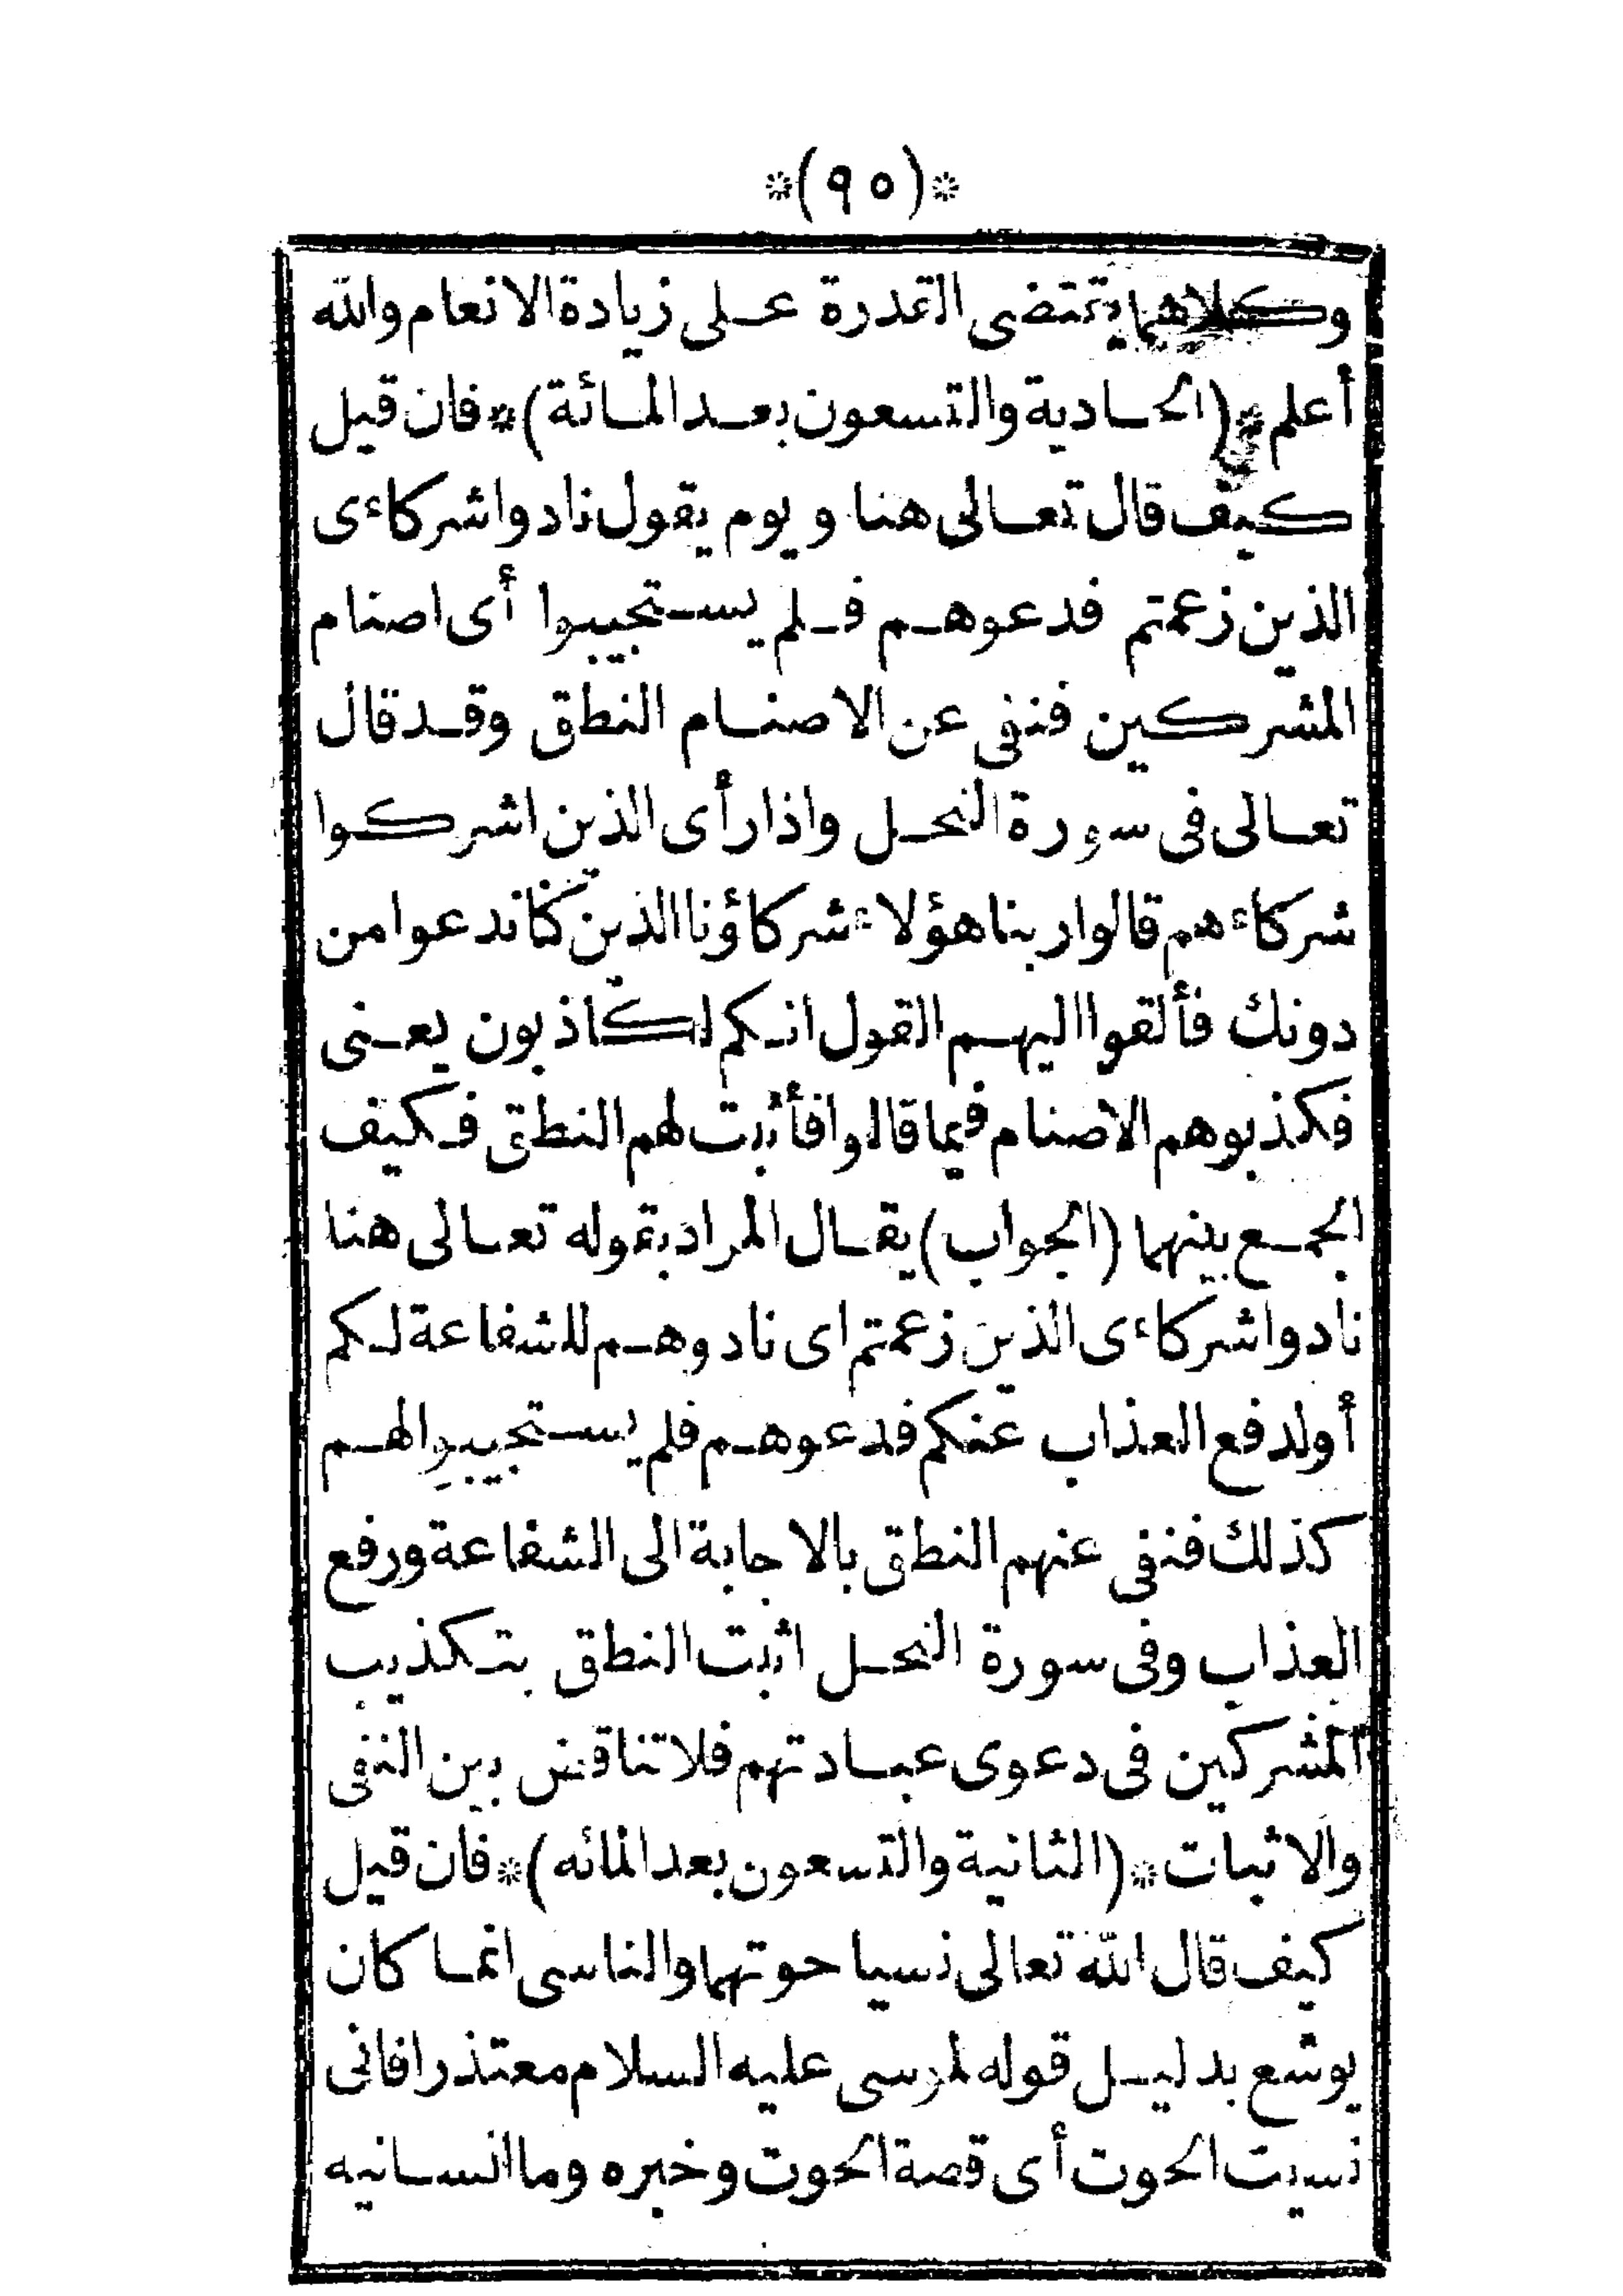 *(٩٥)*
وكلاهما يقتضى القدرة على زيادة الانعام والله
أعلم *(الحادية والتسعون بعد المائة)* فان قيل
كيف قال تعالى هنا ويوم يقول نادوا شركاءى
الذين زعمتم فدعوهم فلم يستجيبوا أى اصنام
المشركين فنفى عن الاصنام النطق وقد قال
تعالى فى سورة النحل واذا رأى الذين اشركوا
شركاءهم قالوا ربنا هؤلاء شركاؤنا الذين كنا ندعوا من
دونك فألقوا اليهم القول انكم لكاذبون يعنى
فكذبوهم الاصنام فيما قالوا فأثبت لهم النطق فكيف
الجمع بينهما (الجواب) يقال المراد بقوله تعالى هنا
نادوا شركاءى الذين زعمتم اى نادوهم للشفاعة لكم
أولدفع العذاب عنكم فدعوهم فلم يستجيبوا لهم
كذلك فنفى عنهم النطق بالاجابة الى الشفاعة ورفع
العذاب وفى سورة النحل اثبت النطق بتكذيب
المشركين فى دعوى عبادتهم فلا تناقض بين النفى
والاثبات *(الثانية والتسعون بعد المائه)* فان قيل
كيف قال الله تعالى نسيا حوتهما والناسى انما كان
يوشع بدليل قوله لموسى عليه السلام معتذرا فانى
نسيت الحوت أى قصة الحوت وخبره وما انسانيه